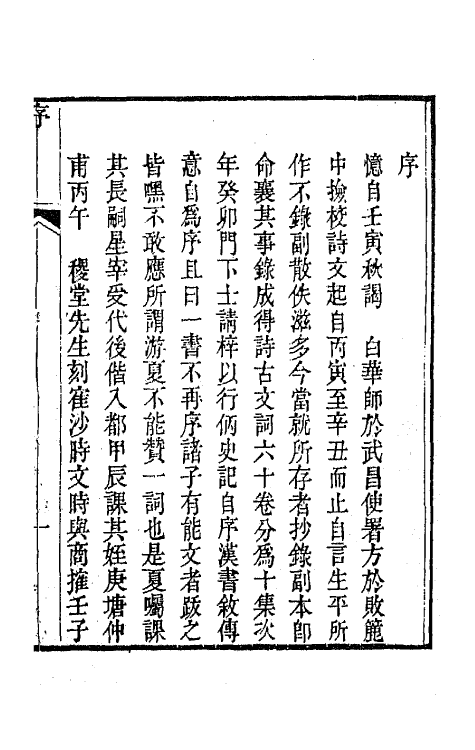 序
憶自壬寅秋謁　白華師於武昌使署方於敗簏
中撿校詩文起自丙寅至辛丑而止自言生平所
作不錄副散佚滋多今當就所存者抄錄副本即
命襄其事錄成得詩古文詞六十卷分爲十集次
年癸卯門下士請梓以行仿史記自序漢書敘傳
意自爲序且曰一書不再序諸子有能文者跋之
皆嘿不敢應所謂游夏不能贊一詞也是夏囑課
其長嗣星宰受代後偕入都甲辰課其姪庚塘仲
甫丙午　稷堂先生刻寉沙時文時與商搉壬子
序
一